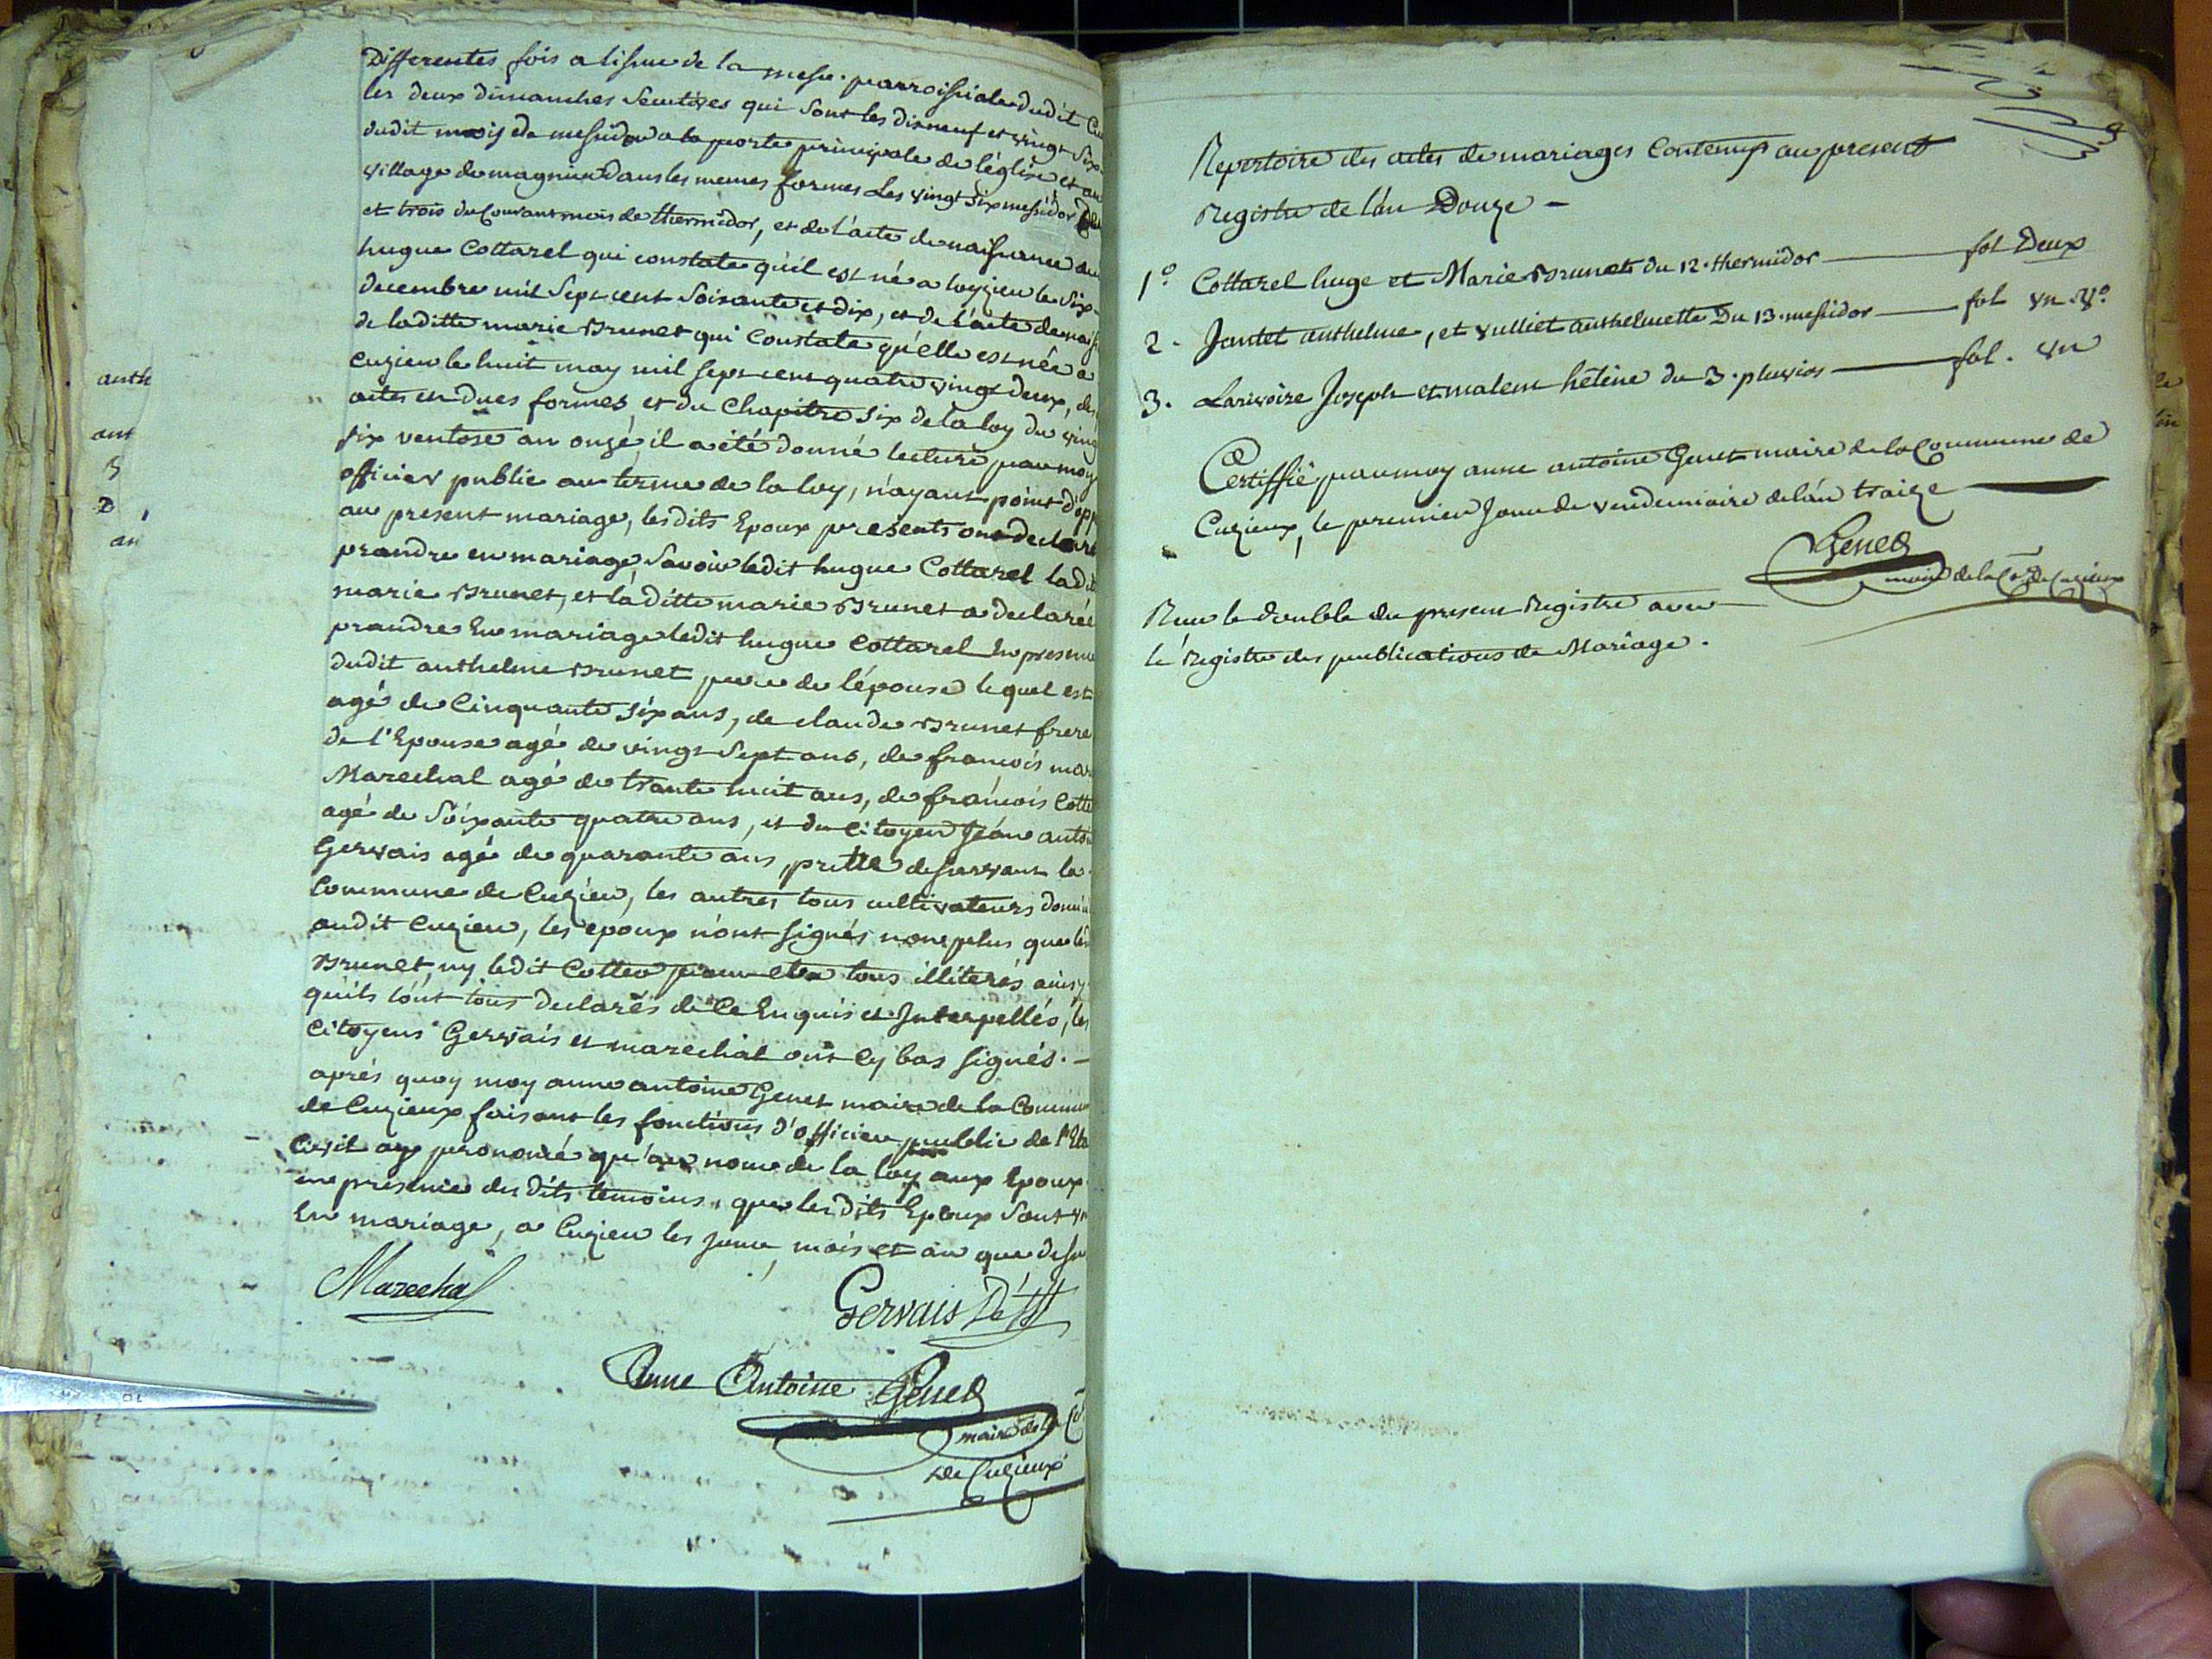 Differentes fois a lissue de la messe parroissiale dudit Cu
les deux dimanches secutives qui sont les dixneuf et vingt six
dudit mois de messidor a la porte principale de léglise et au
village de magnieu dans les memes formes Les vingt six messidor
et trois du Courant mois de thermidor, et de l'acte de naissance du
hugue Cottarel qui constate qu'il est né a loyzieu le six
decembre mil sept cent soixante et dix, et de l'acte de naiss
de laditte marie Brunet qui Constate qu'elle est née a
Cuzieu le huit may mil sept cent quatre vingt deux, des
actes en dues formes, et du Chapitre six de la loy du ving
six ventose an onze, il a été donné lecture par moy
officier public au terme de la loy, n'ayant point d'opp
au present mariage, les dits Epoux presents ont declaré
prandre en mariage Savoir ledit hugue Cottarel ladit
marie Brunet, et laditte marie Brunet a declaré
prandre En mariage ledit hugue Cottarel En presence
dudit anthelme Brunet pere de lépouse lequel est
agé de Cinquante six ans, de claude Brunet frere
de l'Epouse agé de vingt sept ans, de francois mar
Marechal agé de trante huit ans, de francois Cotte
agé de soixante quatre ans, et du Citoyen Jeane anto
Gervais agé de quarante ans prettre desservant la
Commune de Cuzieu, les autres tous cultivateurs domi
audit Cuzieu, les epoux n'ont signés none plus que les
Brunet, ny ledit Cotte pour etre tous illiterés ainsy
qu'ils l'ont tous declarés de Ce Enquis et Interpellés, les
Citoyens Gervais et marechal ont Cy bas signés. —
aprés quoy moy anne antoine Genet maire de la Commu
de Cuzieux faisant les fonctions d'officier public de l'Eta
Civil ay prononcé qu'au nome de la loy aux Epoux
en presence des dits temoins, que les dits Epoux sont un
En mariage, a Cuzieu les jour, mois et an que dessu
Marechal
Gervais
Anne Antoine Genet
maire de la Cne
de Cuzieux
anth
ant
D
an
Repertoire des actes de mariages Contenus au present
Registre de l'an Douze —
1° Cottarel huge et Marie Brunet du 12. thermidor — fol Deux
2. Jantet anthelme, et vulliet anthelmette Du 13. messidor — fol un v°
3. Larivoire Joseph et malem hélène du 3. pluvios — fol. un
Certiffié par moy anne antoine Genet maire de la Commune de
Cuzieux, le premier Jour de vendemiaire de l'an traize
Genet
maire de la Cne de Cuzieux
Reçu le double du present Registre avec
le Registre des publications de Mariage.